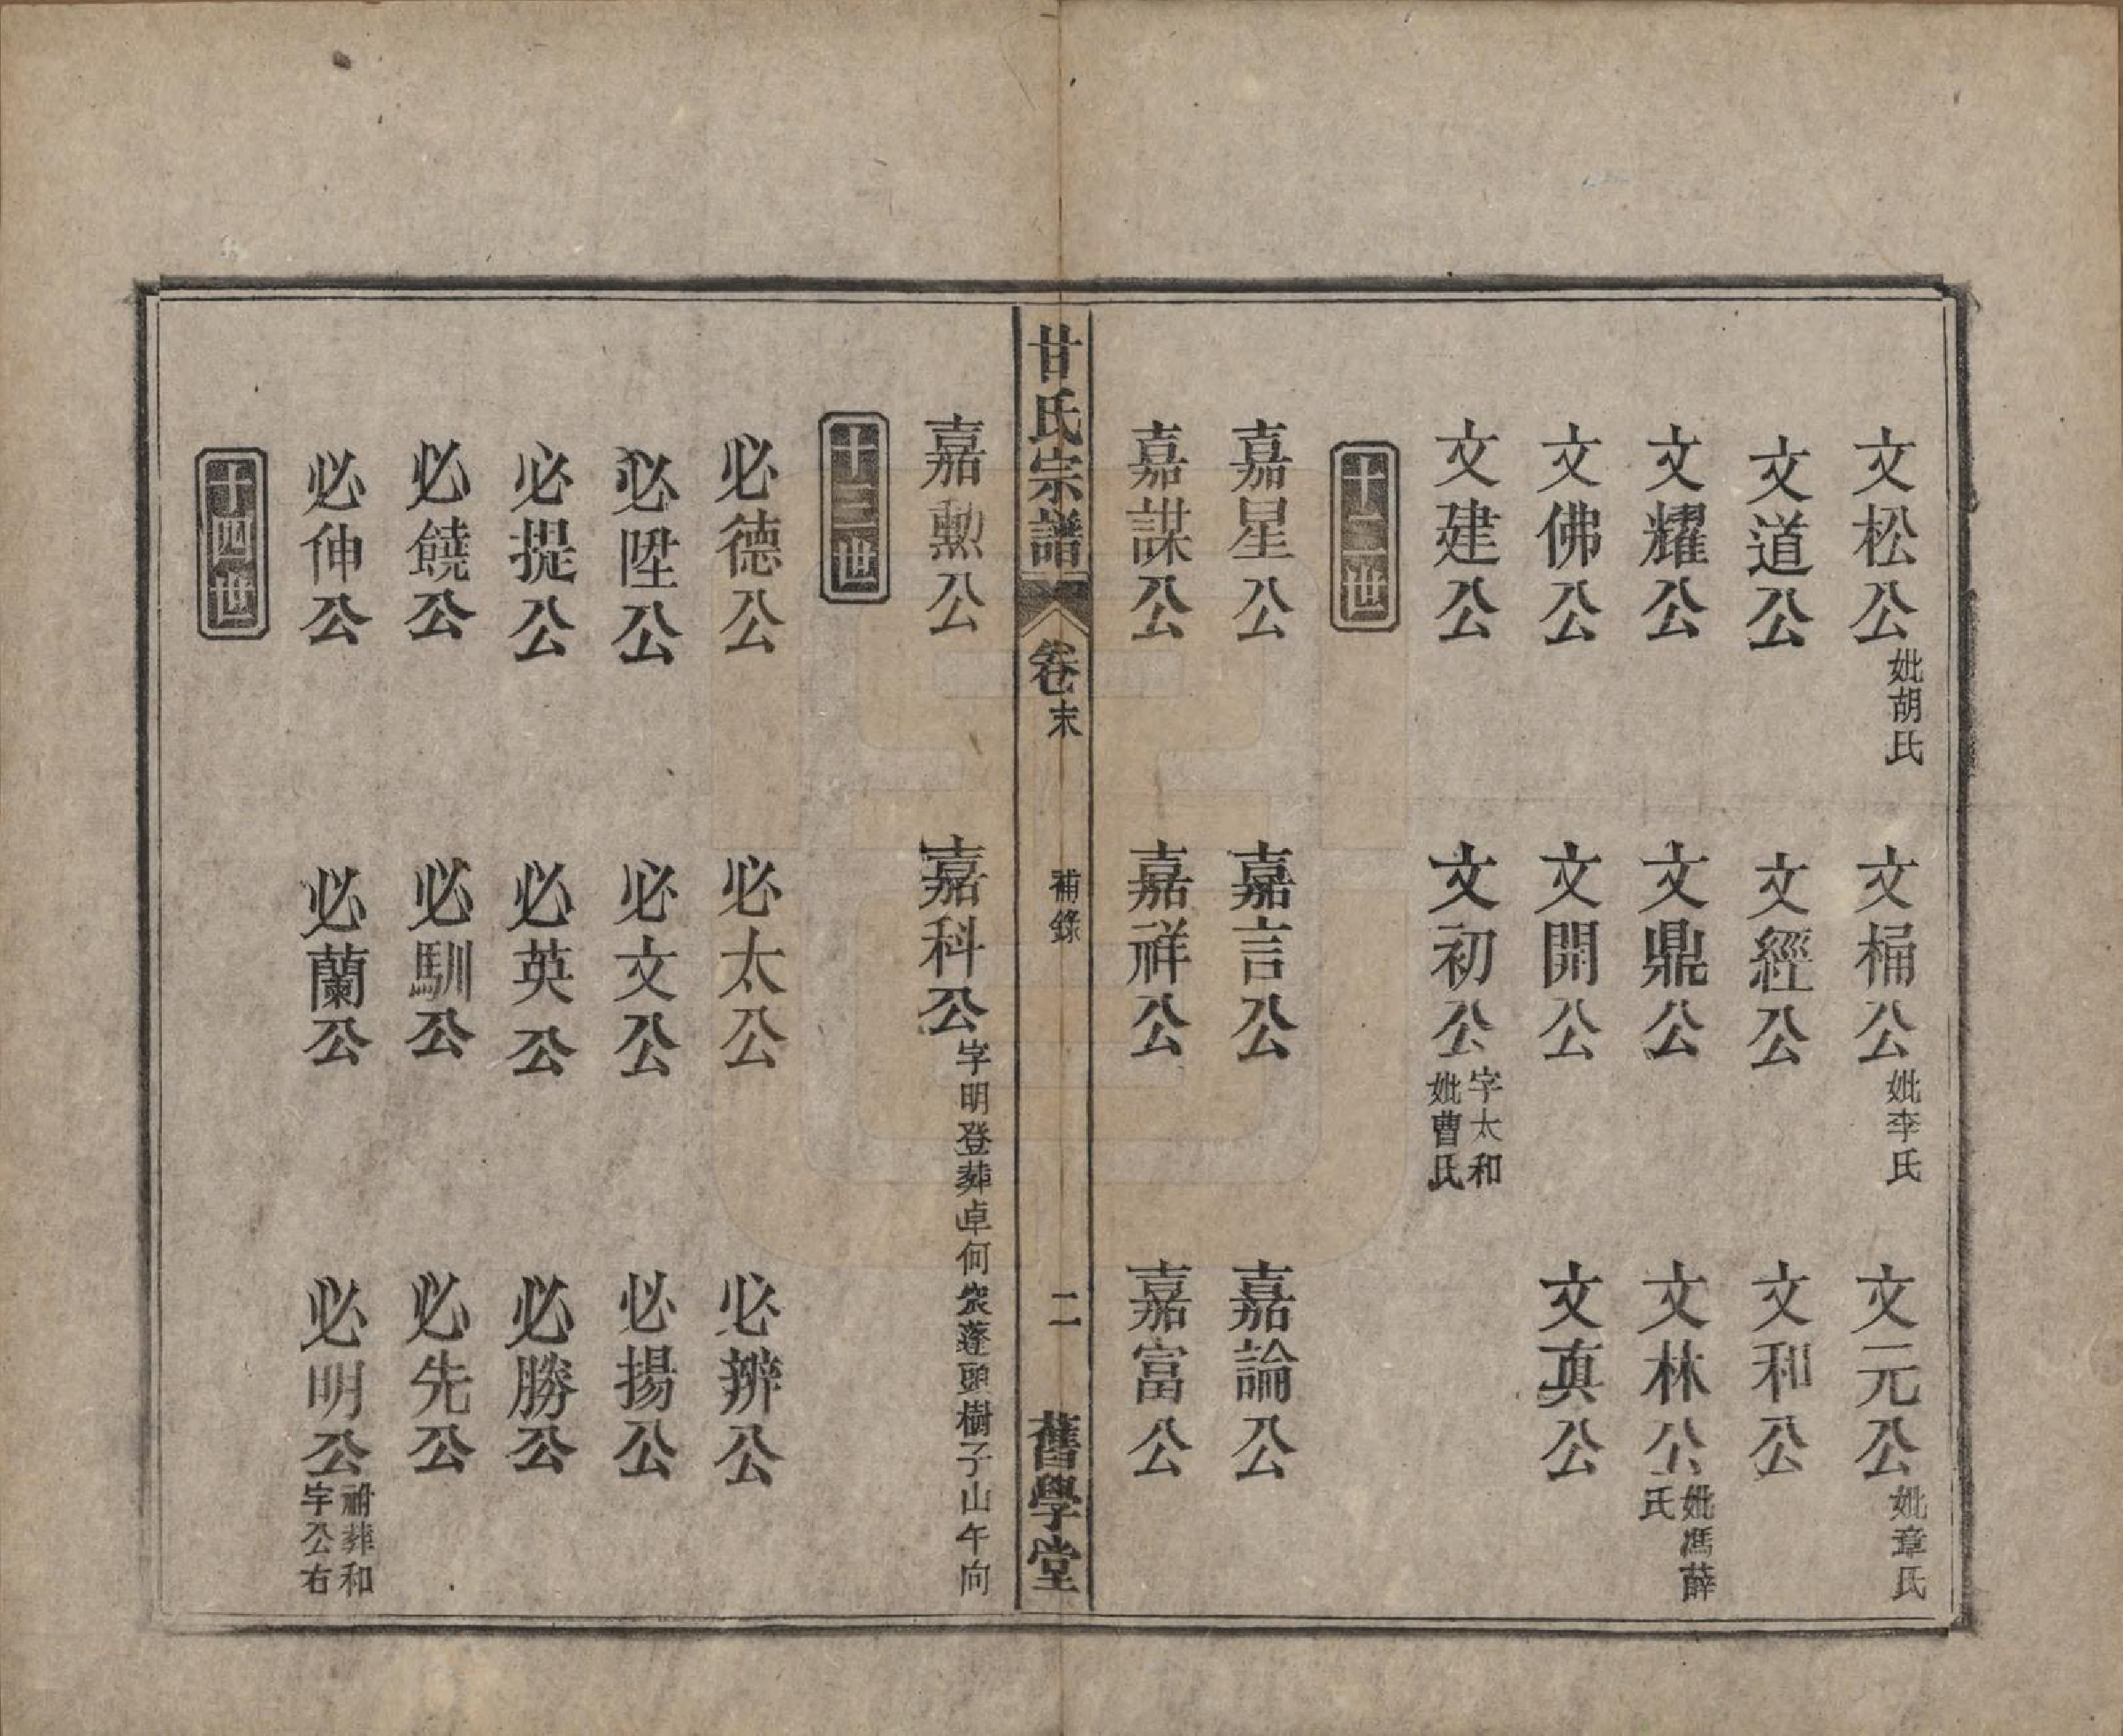 文松公妣胡氏 文桶公妣李氏 文元公妣章氏
文道公 文經公 文和公
文耀公 文鼎公 文林公妣馮薛氏
文佛公 文開公 文真公
文建公 文初公字太和妣曹氏
十二世
嘉星公 嘉言公 嘉論公
嘉謀公 嘉祥公 嘉富公
甘氏宗譜 卷末 補錄 二 舊學堂
嘉勲公 嘉科公字明登葬卓何衆蓬頭樹子山午向
十三世
必德公 必太公 必辨公
必陞公 必文公 必揚公
必提公 必英公 必勝公
必饒公 必馴公 必先公
必伸公 必蘭公 必明公祔葬和宇公右
十四世